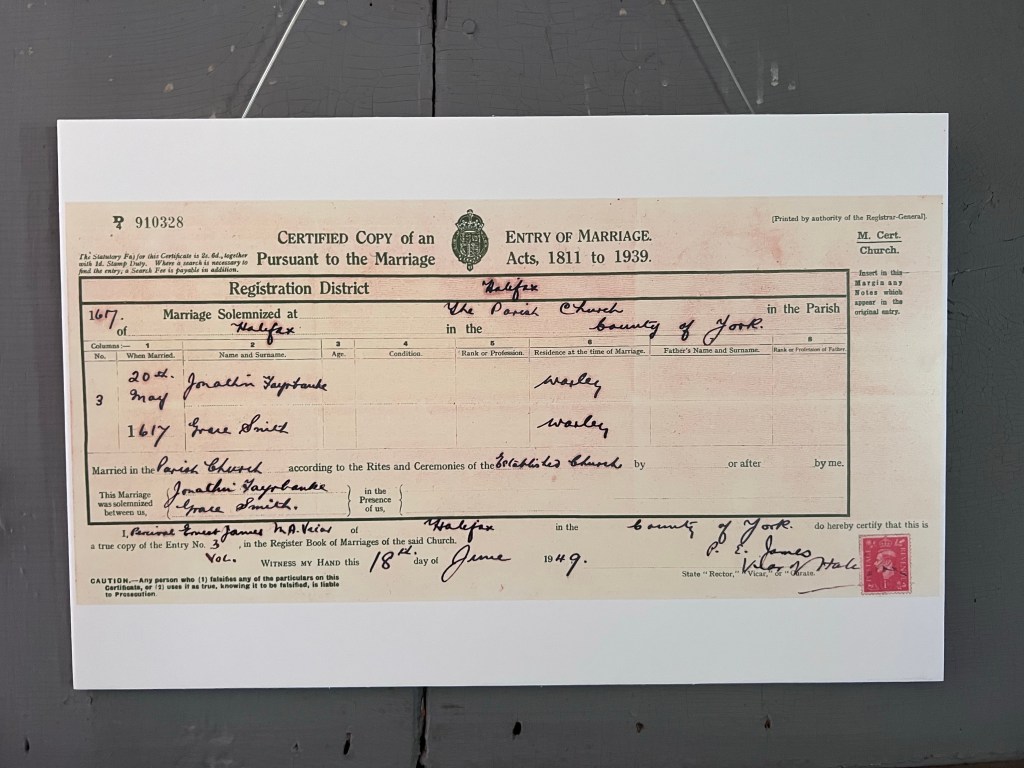 910328
[Printed by authority of the Registrar-General].
CERTIFIED COPY of an ENTRY OF MARRIAGE.
Pursuant to the Marriage Acts, 1811 to 1939.
M. Cert.
Church.
The Statutory Fee for this Certificate is 2s. 6d., together
with 1d. Stamp Duty. Where a search is necessary to
find the entry, a Search Fee is payable in addition.
Insert in this
Margin any
Notes which
appear in the
original entry.
Registration District Halifax
1617. Marriage Solemnized at The Parish Church in the Parish
of Halifax in the County of York.
Columns :— 1 2 3 4 5 6 7 8
No. When Married. Name and Surname. Age. Condition. Rank or Profession. Residence at the time of Marriage. Father's Name and Surname. Rank or Profession of Father.
3 20th. May Jonathin Fayrbanke Warley
1617 Grace Smith Warley
Married in the Parish Church according to the Rites and Ceremonies of the Established Church by or after by me.
This Marriage was solemnized between us, Jonathin Fayrbanke Grace Smith. in the Presence of us,
I, Percival Ernest James M.A. Vicar of Halifax in the County of York. do hereby certify that this is
a true copy of the Entry No. 3 , in the Register Book of Marriages of the said Church.
Vol. WITNESS MY HAND this 18th. day of June 1949.
P. E. James
Vicar of
State "Rector," "Vicar," or "Curate."
CAUTION.—Any person who (1) falsifies any of the particulars on this
Certificate, or (2) uses it as true, knowing it to be falsified, is liable
to Prosecution.